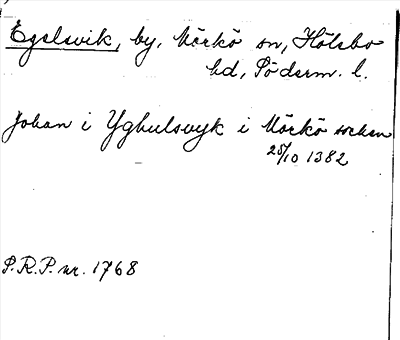 Egelsvik, by, Mörkö sn, Hölebo
hd, Söderm. l.
Johan i Yghulsvyk i Mörkö socken
25/10 1382
S.R.P. nr. 1768